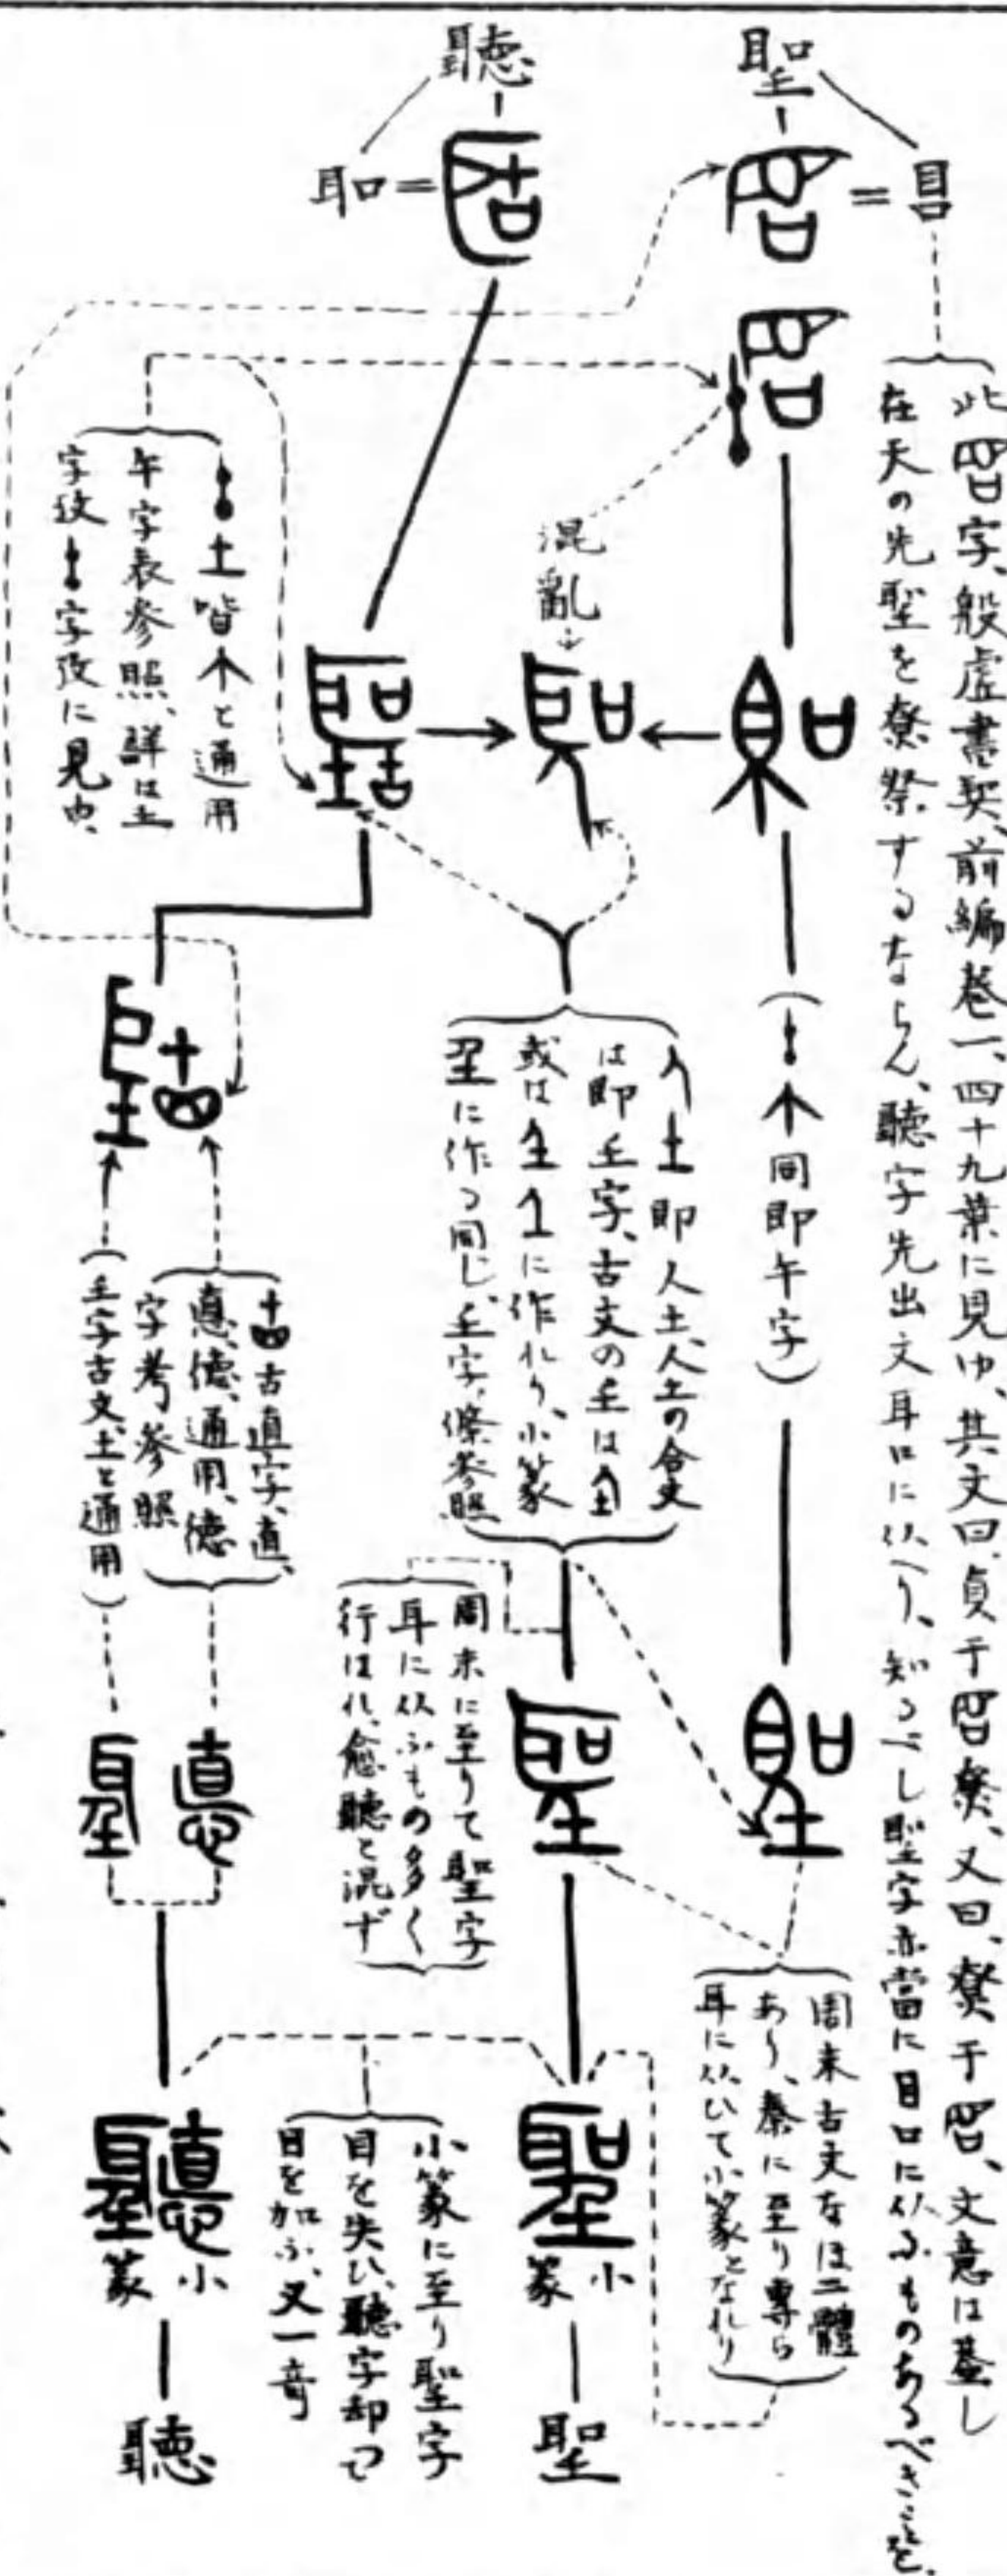 聖
聽
= 𥄳
耴 =
此字、殷虚書契、前編巻一、四十九葉に見ゆ、其文曰、貞于尞、又曰、尞于、文意は蓋し
在天の先聖を尞祭するならん、聽字先出文耳口に从へり、知るべし聖字亦當に目口に从ふものあるべきことを、
混亂
土皆个と通用
午字表参照、詳は土
字攷字攷に見ゆ、
(个同即午字)
即人土、人土の合文
は即𡈼字、古文の𡈼は
或はに作れり、小篆
に作る同じ、𡈼字條参照
古直字、直、
悳、德、通用、德
字考参照
(𡈼字古文、土と通用)
周末に至りて聖字
耳に从ふもの多く
行はれ、愈聽と混ず
周末古文なほ二體
あり、秦に至り専ら
耳に从ひて小篆となれり
小篆に至り聖字
目を失ひ、聽字却つて
目を加ふ、又一奇
小篆
小篆
聖
聽